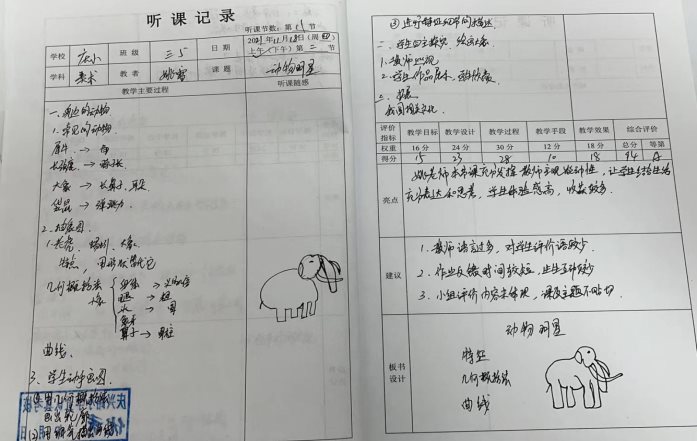 听课记录
听课节数：第 节
学校 庆小 班级 三5 日期 2021年11月18日（周四）
上午（下午）第二节
学科 美术 教者 课题 动物明星
教学主要过程 听课随感
一、身边的动物
1.常见的动物
犀牛 → 角
长颈鹿 →
大象 → 长鼻子，耳朵
袋鼠 → 弹跳力
2.
1.老虎、 大象
特点，用形状替代它
几何概括法
大象
头 → 圆
鼻子 →
曲线
3、学生动手画图
(1)用几何概括法
画出轮廓
③进行特征细节的描述
二、学生自主探究，绘画大象
1.教师巡视
2.学生作品展示，
三、拓展
我国相关文化
评价指标 教学目标 教学设计 教学过程 教学手段 教学效果 综合评价
权重 16分 24分 30分 12分 18分 总分 等第
得分 15 23 28 10 18 94 A
亮点
姚老师本节课充分发挥教师主观能动性，让学生
充分表达和思考，学生体验感高，收获较多。
建议
1.教师语言过多，对学生评价语较少.
2.作业反馈时间较短，生生互动较少
3.小组评价内容未体现，课后主题不贴切.
板书设计
动物明星
特征
几何概括法
曲线